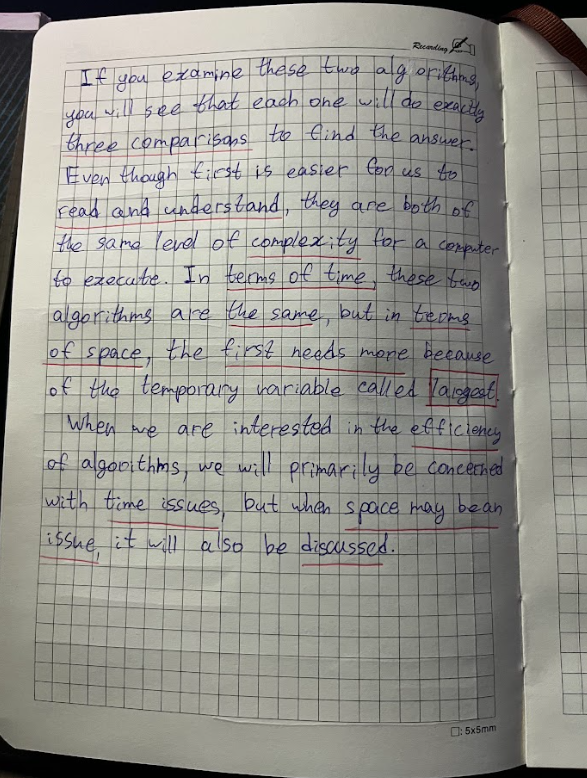 Recording
If you examine these two alg orithms,
you will see that each one will do exactly
three comparisons to find the answer.
Even though first is easier for us to
read and understand, they are both of
the same level of complexity for a computer
to execute. In terms of time, these two
algorithms are the same, but in terms
of space, the first needs more because
of the temporary variable called largest.
When we are interested in the efficiency
of algorithms, we will primarily be concerned
with time issues, but when space may be an
issue, it will also be discussed.
□: 5x5mm